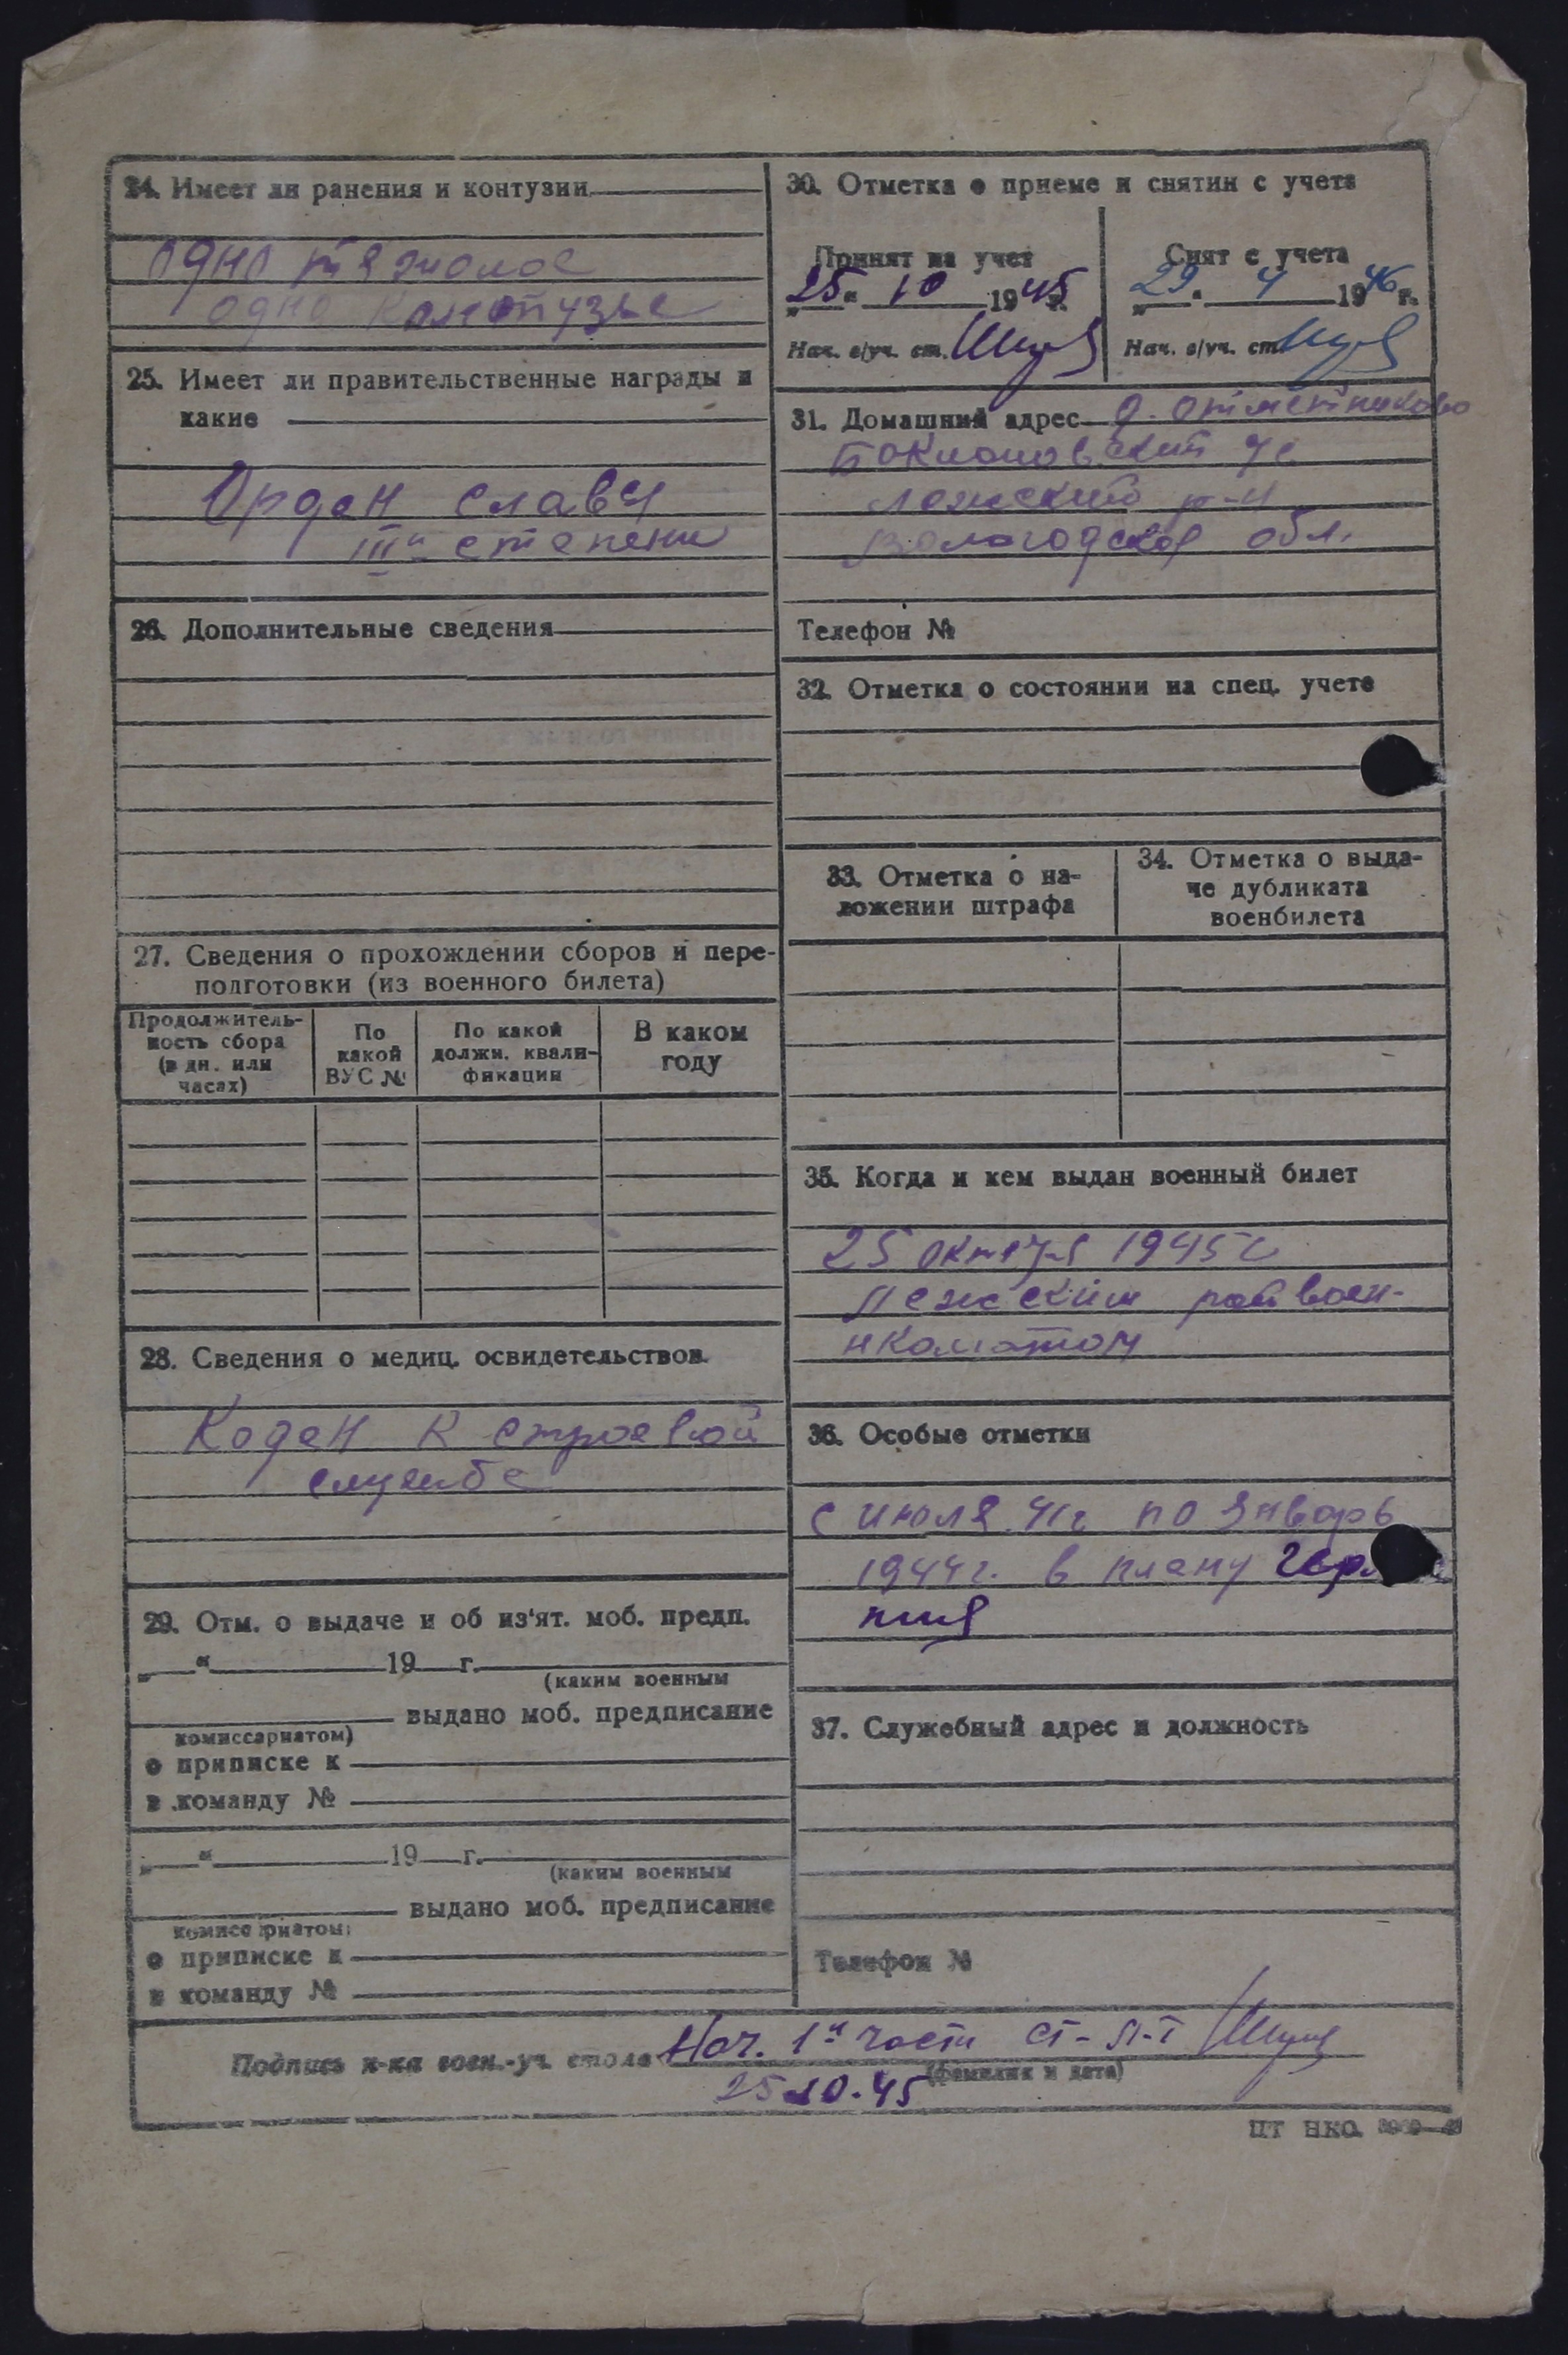 24. Имеет ли ранения и контузии
одно тяжолое
одно контузье
25. Имеет ли правительственные награды и
какие
Орден славы
III й степени
26. Дополнительные сведения
27. Сведения о прохождении сборов и пере-
подготовки (из военного билета)
Продолжитель-
ность сбора
(в дн. или
часах)
По
какой
ВУС №
По какой
должн. квали-
фикации
В каком
году
28. Сведения о медиц. освидетельствов.
Годен к строевой
службе
29. Отм. о выдаче и об из'ят. моб. предп.
„ “ 19 г.
(каким военным
выдано моб. предписание
комиссариатом)
о приписке к
в команду №
„ “ 19 г.
(каким военным
выдано моб. предписание
комиссариатом)
о приписке к
в команду №
30. Отметка о приеме и снятии с учета
Принят на учет
25 “ 10 1945 г.
Нач. в/уч. ст.
Снят с учета
29 “ 4 1946 г.
Нач. в/уч. ст.
31. Домашний адрес д. Отметниково
с
р-н
Вологодской обл.
Телефон №
32. Отметка о состоянии на спец. учете
33. Отметка о на-
ложении штрафа
34. Отметка о выда-
че дубликата
военбилета
35. Когда и кем выдан военный билет
25 октября 1945 г
райвоен-
нкоматом
36. Особые отметки
с июля 41г по январь
1944г. в плену
37. Служебный адрес и должность
Телефон №
Подпись н-ка воен.-уч. стола Нач. 1й части ст-л-т
(фамилия и дата)
25 10.45
ЦТ НКО.